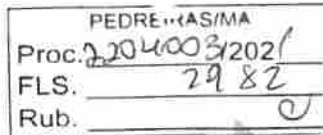 PEDREIRAS/MA
Proc. 2204003/2021
FLS. 2982
Rub.